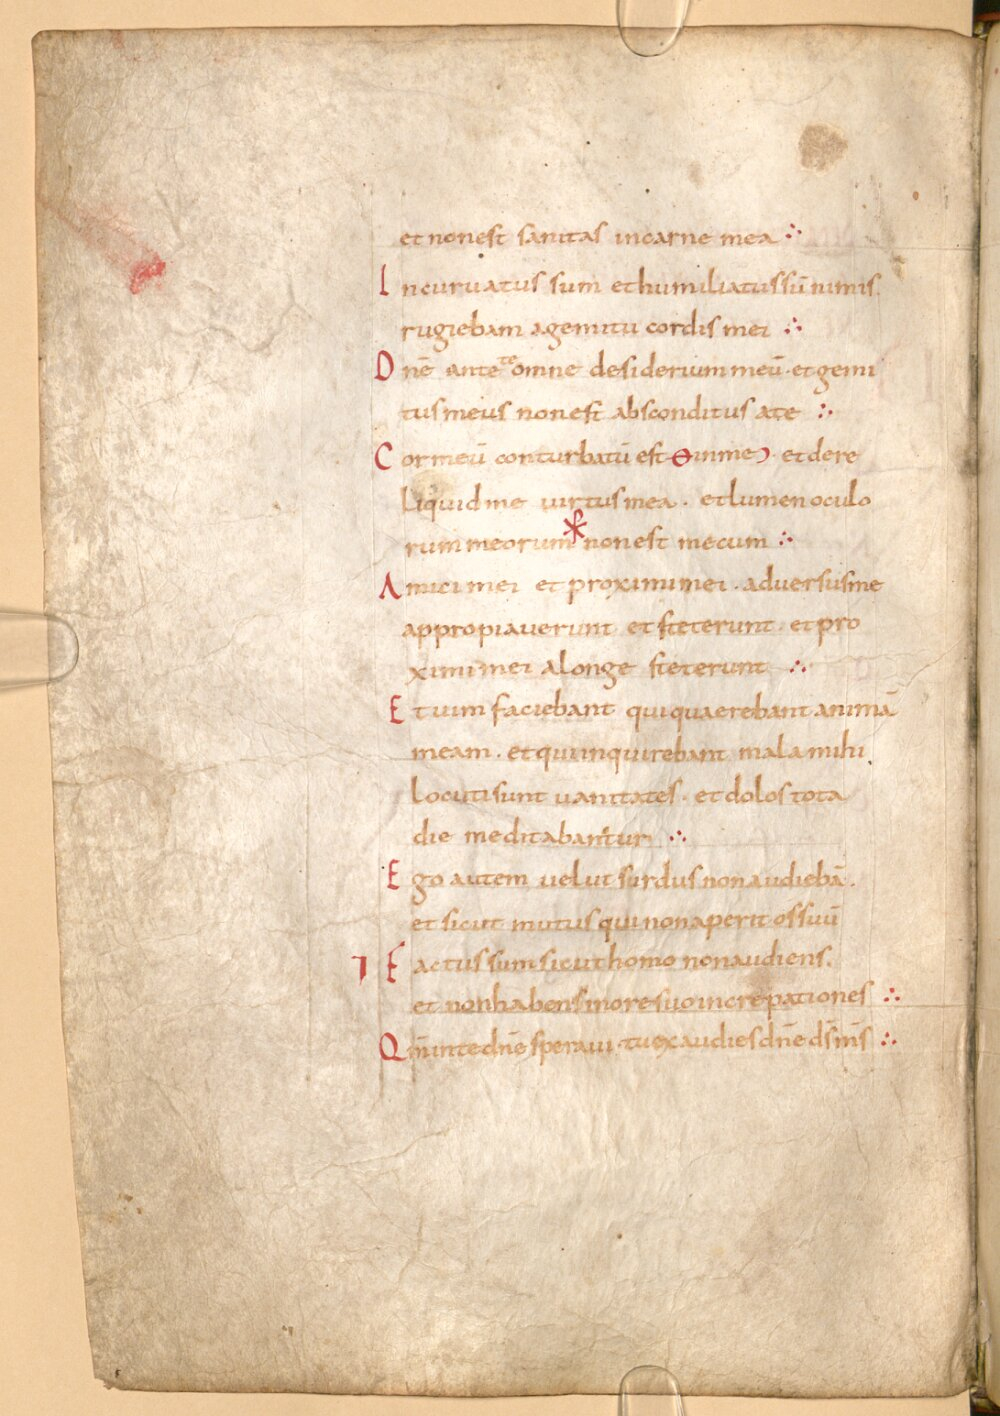 et non est sanitas in carne mea ∴
Incurvatus sum et humiliatus sū nimis
rugiebam agemitu cordis mei ∴
Dnē ante te omne desiderium meū · et gemi
tus meus non est absconditus a te ∴
Cor meū conturbatū est ÷ in me · et dere
liquid me virtus mea · et lumen oculo
rum meorum ※ non est mecum ∴
Amici mei et proximi mei · adversus me
appropiaverunt et steterunt · et pro
ximi mei alonge steterunt ∴
Et vim faciebant qui quaerebant animā
meam · et qui inquirebant mala mihi
locuti sunt vanitates · et dolos tota
die meditabantur ∴
Ego autem velut surdus non audiebā ·
et sicut mutus qui non aperit os suū
Factus sum sicut homo non audiens ·
et non habens in ore suo increpationes ∴
Qm̄ in te dn̄e speravi · tu exaudies dn̄e ds̄ ms̄ ∴